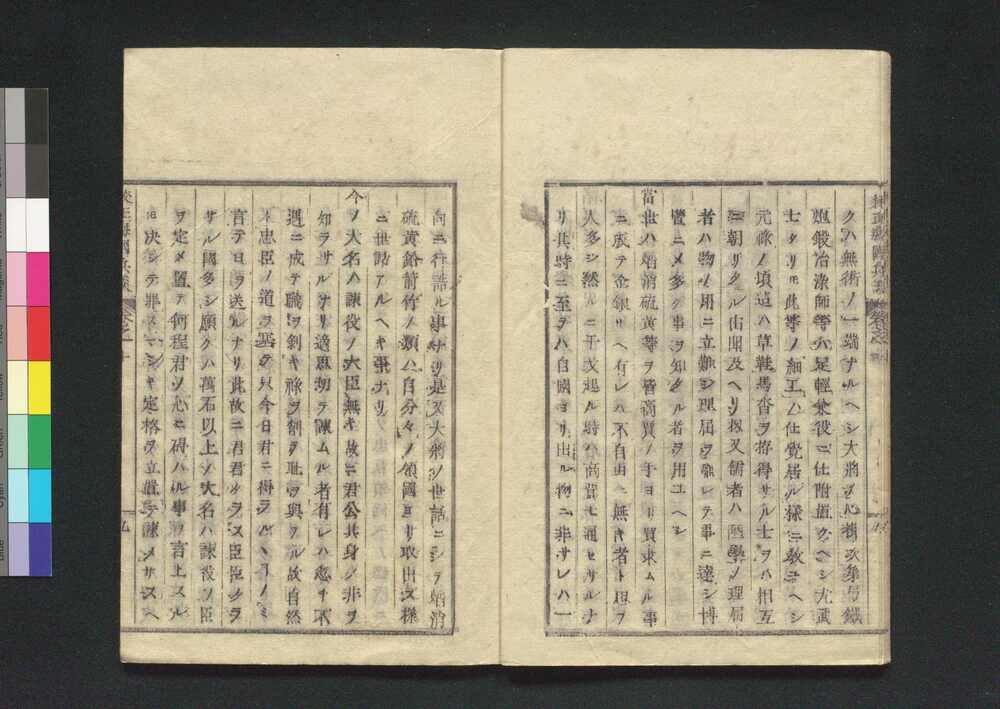 クハ無術ノ一端ナルヘシ大將ヲル心掛次第弓鐵
炮鍛冶漆師等ハ足輕兼役ニ仕附置クヘシ尤武
士タリモ此等ノ細工ハ仕覺居ル樣ニ教ユヘシ
元祿ノ頃迠ハ草鞋馬沓ヲ拵得サル士ヲハ相互
ニ嘲リタル由聞及ヘリ扨又儒者ハ學ノ理屈
者ハ物ノ用ニ立難シ理屈ヲ離レテ事ニ達シ博
覽ニメ多ク事ヲ知タル者ヲ用ユヘシ
當世ハ焇消硫黄等ヲ皆商賈ノ手ヨリ買求ムル事
ニ成テ金銀サヘ有レハ不自由ニ無キ者ト思フ
人多シ然ルニ干戈起ル時ハ商賈モ通セサルナ
リ其時ニ至テハ自國ヨリ出ル物ニ非サレハ一
向ニ行詰ル事ナリ是又大將ノ世話ニシテ焇消
硫黄鉛箭竹ノ類ハ自分々々ノ領國ヨリ取出ス樣
ニ世話アルヘキ事ナリ
今ノ大名ハ諫役ノ大臣無キ故ニ君公其身ノ非ヲ
知ラサルナリ適思切テ諫ムル者有レハ忽チ不
遇ニ成テ職ヲ剥キ祿ヲ削テ耻ヲ與フル故自然
ト忠臣ノ道ヲ塞テ只今日君ニ得ラルヽヿノミ
言テ日ヲ送ルナリ此故ニ君君タラス臣臣タラ
サル國多シ願クハ萬石以上ノ大名ハ諫役ノ臣
ヲ定メ置テ何程君ノ心ニ碍ハル事ヲ言上スル
モ決シテ罪スマシキ定格ヲ立置テ諫メサスヘ